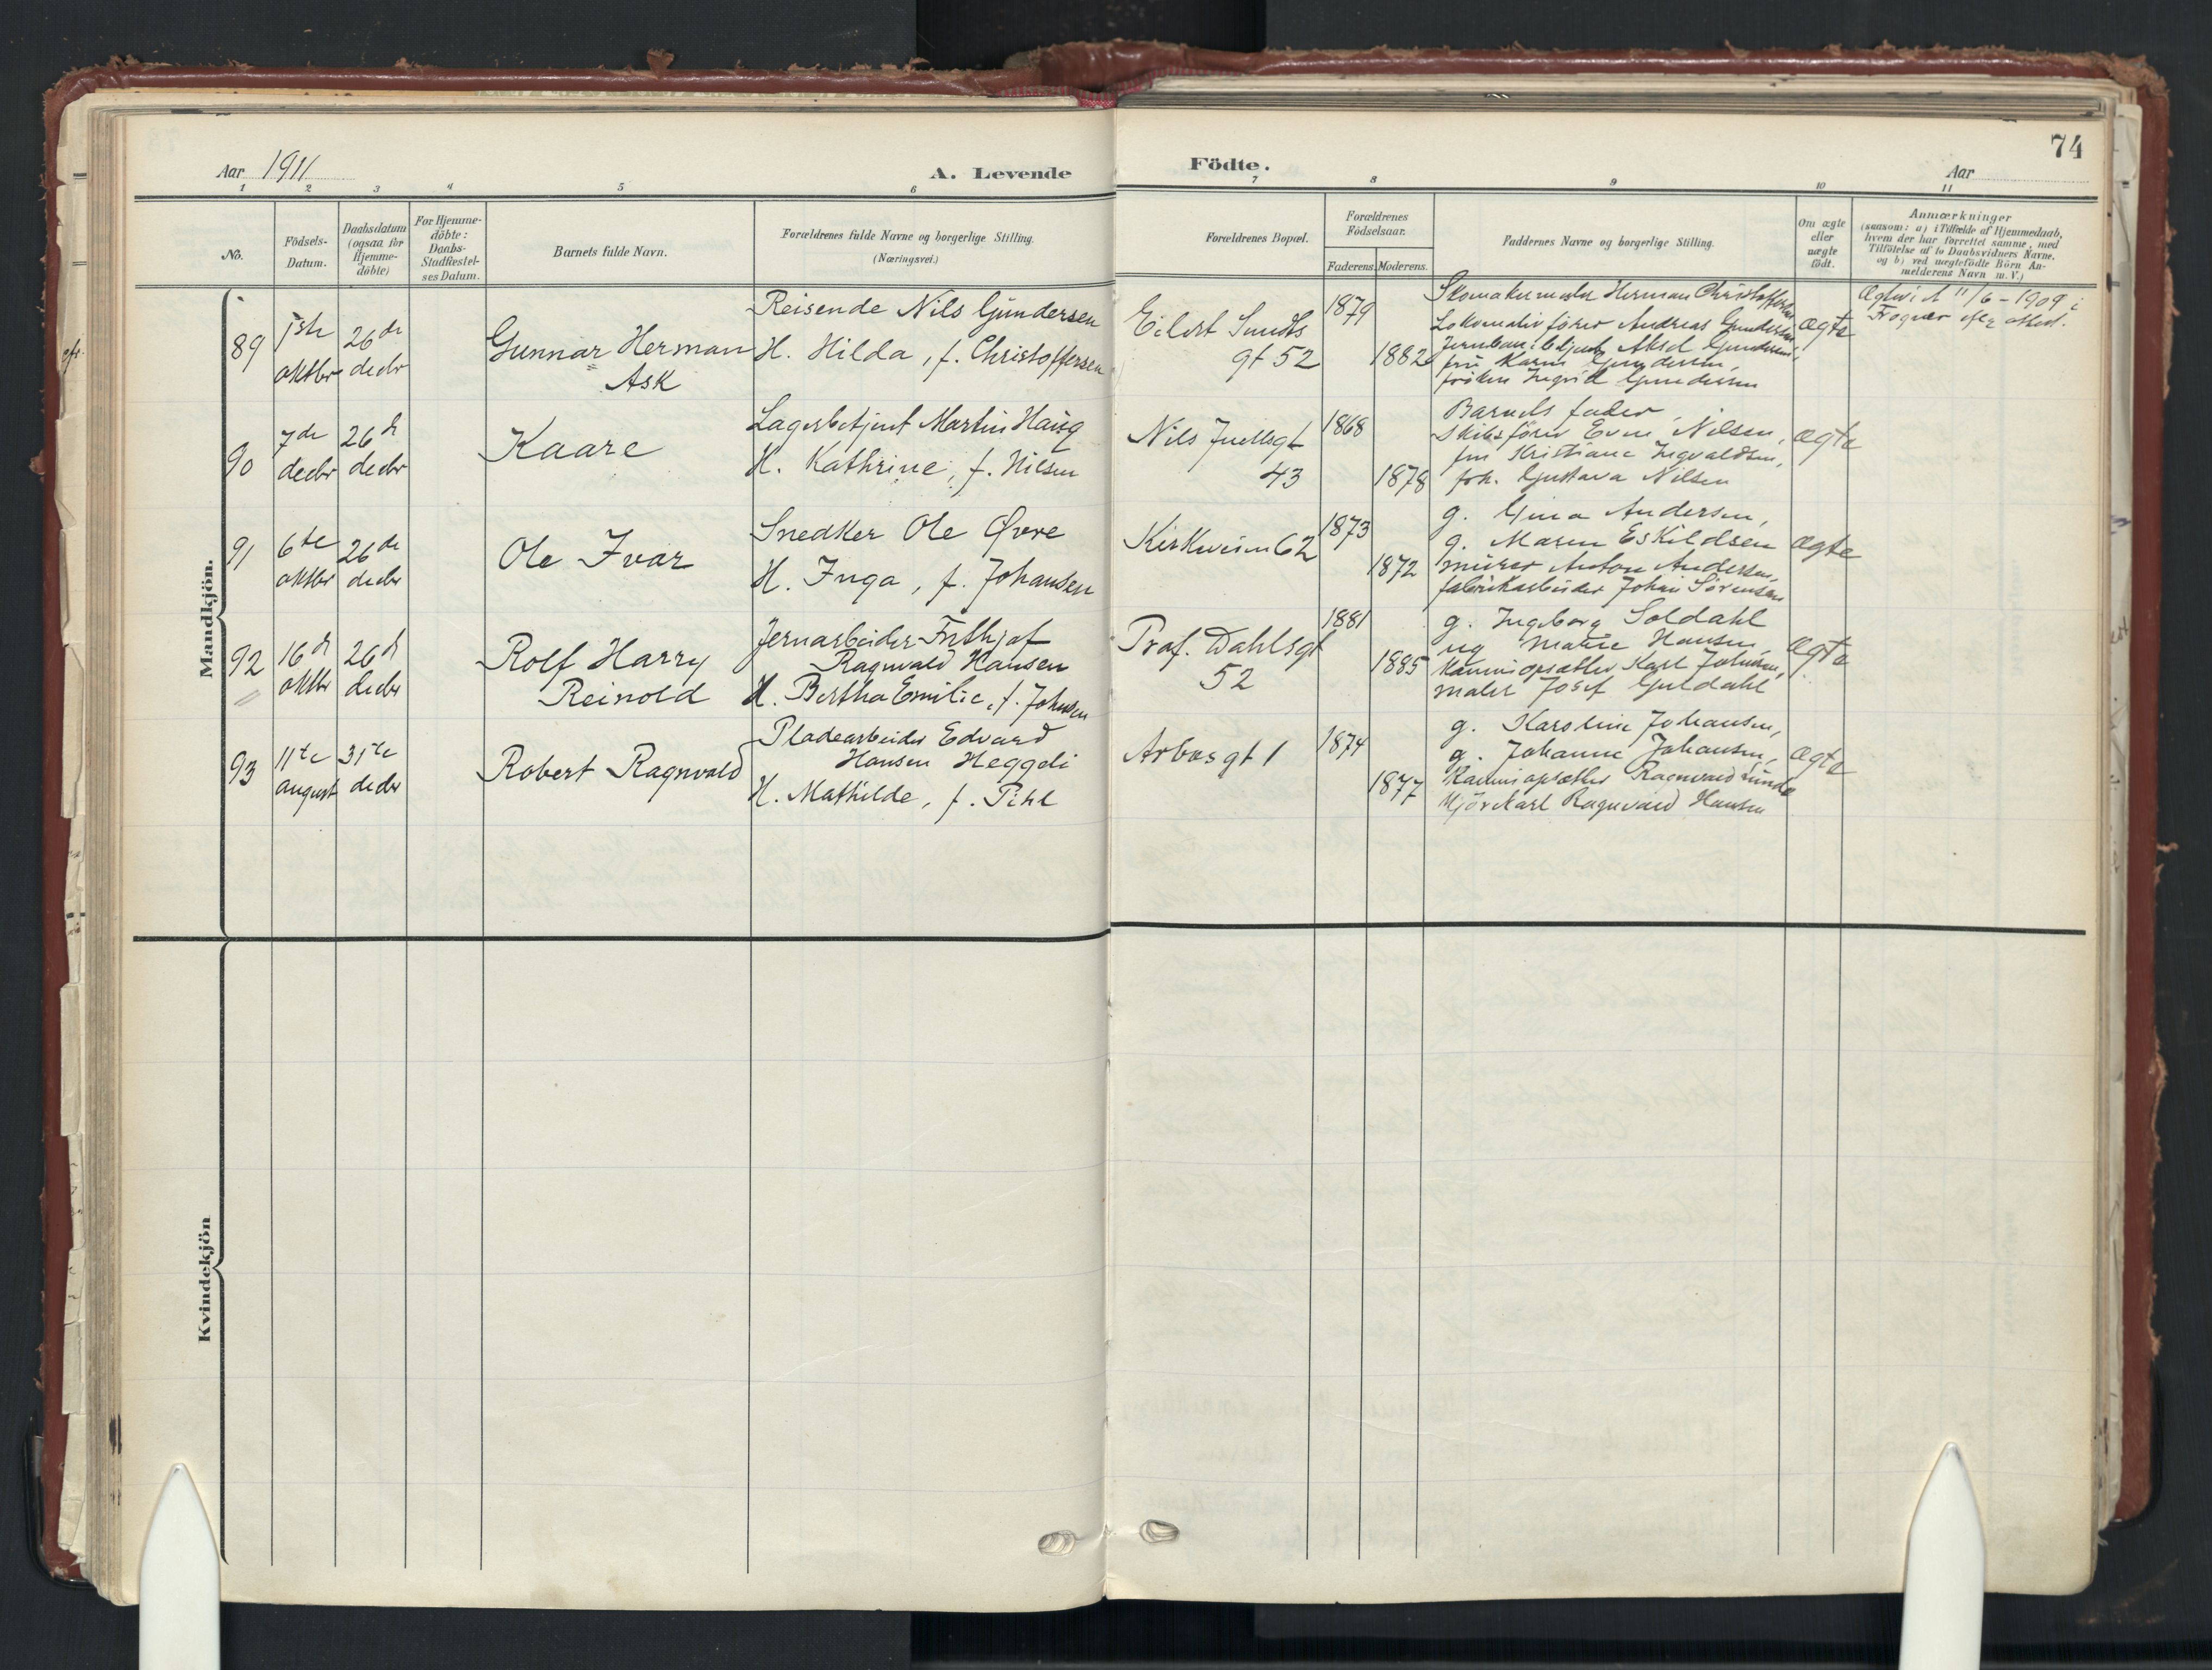 74
Aar 1911
A. Levende
Födte.
Aar
1 2 3 4 5 6 7 8 9 10 11
No.
Födsels-
Datum.
Daabsdatum
(ogsaa for
Hjemme-
döbte)
For Hjemme-
döbte:
Daabs-
Stadfæstel-
ses Datum.
Barnets fulde Navn.
Forældrenes fulde Navne og borgerlige Stilling.
(Næringsvei.)
Forældrenes Bopæl.
Forældrenes
Födselsaar.
Faderens. Moderens.
Faddernes Navne og borgerlige Stilling.
Om ægte
eller
uægte
födt.
Anmærkninger
(saasom: a) i Tilfælde af Hjemmedaab,
hvem der har forrettet samme, med
Tilföielse af to Daabsvidners Navne,
og b) ved uægtefödte Börn An-
melderens Navn m. V.)
Mandkjön.
89
1ste
oktbr
26de
decbr
Gunnar Herman
Ask
Reisende Nils Gundersen
H. Hilda, f. Christoffersen
Eilert Sundts
gt 52
1879
1882
Skomakermester Herman Christoffersen
Lokomotivfører Andreas Gundersen
Jernbanebetjent Aksel Gundersen,
fru Karen Gundersen,
frøken Ingrid Gundersen
ægte
Ægtevi et 11/6 - 1909 i
Fogner
90
7de
decbr
26d
decbr
Kaare
Lagerbetjent Martin Haug
H. Kathrine, f. Nilsen
Nils Juellsgt
43
1868
1878
Barnets fader,
Skibsfører Even Nilsen,
fru Kristiane Ingvaldsen,
frk. Gustava Nilsen
ægte
91
6te
oktbr
26de
decbr
Ole Ivar
Snedker Ole Øvre
H. Inga, f. Johansen
Kirkveien 62
1873
1872
g. Gina Andersen,
g. Maren Eskildsen
murer Anton Andersen,
fabrikarbeider Johan Sørensen
ægte
92
16d
oktbr
26d
decbr
Rolf Harry
Reinold
Jernarbeider Frithjof
Ragnvald Hansen
H. Bertha Emilie, f. Johnsen
Prof. Dahlsgt
52
1881
1885
g. Ingeborg Soldahl
ug Marie Hansen,
Kaminopsætter Karl Johnsen,
maler Josef Guldahl
ægte
93
11te
august
31te
decbr
Robert Ragnvald
Pladearbeider Edvard
Hansen Heggeli
H. Mathilde, f. Pihl
Arbosgt 1
1874
1877
g. Karoline Johansen,
g. Johanne Johansen,
Kaminopsætter Ragnvald Lunde
Kjørekarl Ragnvald Hansen
ægte
Kvindekjön